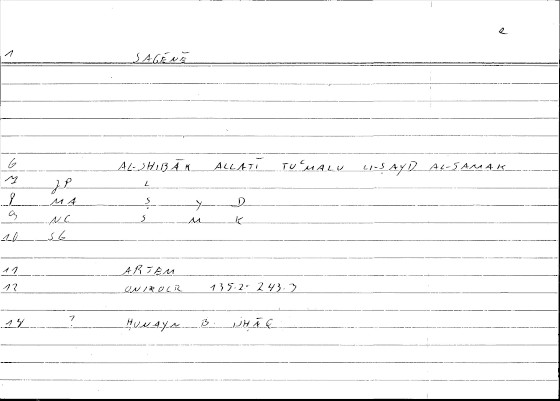 e
1 SAGĒNĒ
6 AL-SHIBĀK ALLATĪ TUʿMALU LI-ṢAYD AL-SAMAK
7 JP L
8 MA Ṣ Y D
9 NC S M K
10 SG
11 ARTEM
12 ONIROCR 135.2- 243.7
14 ? ḤUNAYN B. ISḤĀQ